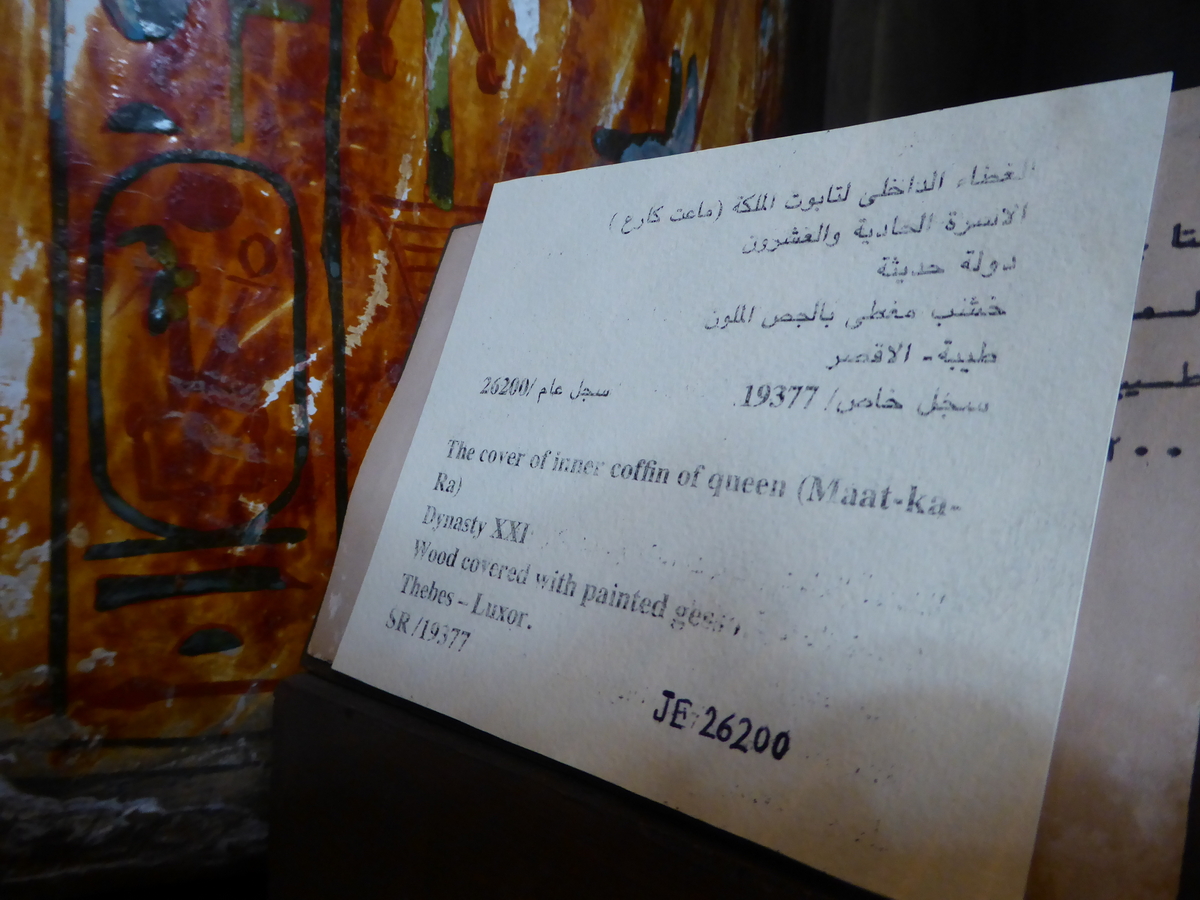 الغطاء الداخلى لتابوت الملكة (ماعت كارع)
الاسرة الحادية والعشرون
دولة حديثة
خشب مغطى بالجص الملون
طيبة - الاقصر
سجل خاص/ 19377 سجل عام /26200
The cover of inner coffin of queen (Maat-ka-
Ra)
Dynasty XXI
Wood covered with painted gesso
Thebes – Luxor.
SR /19377
JE 26200